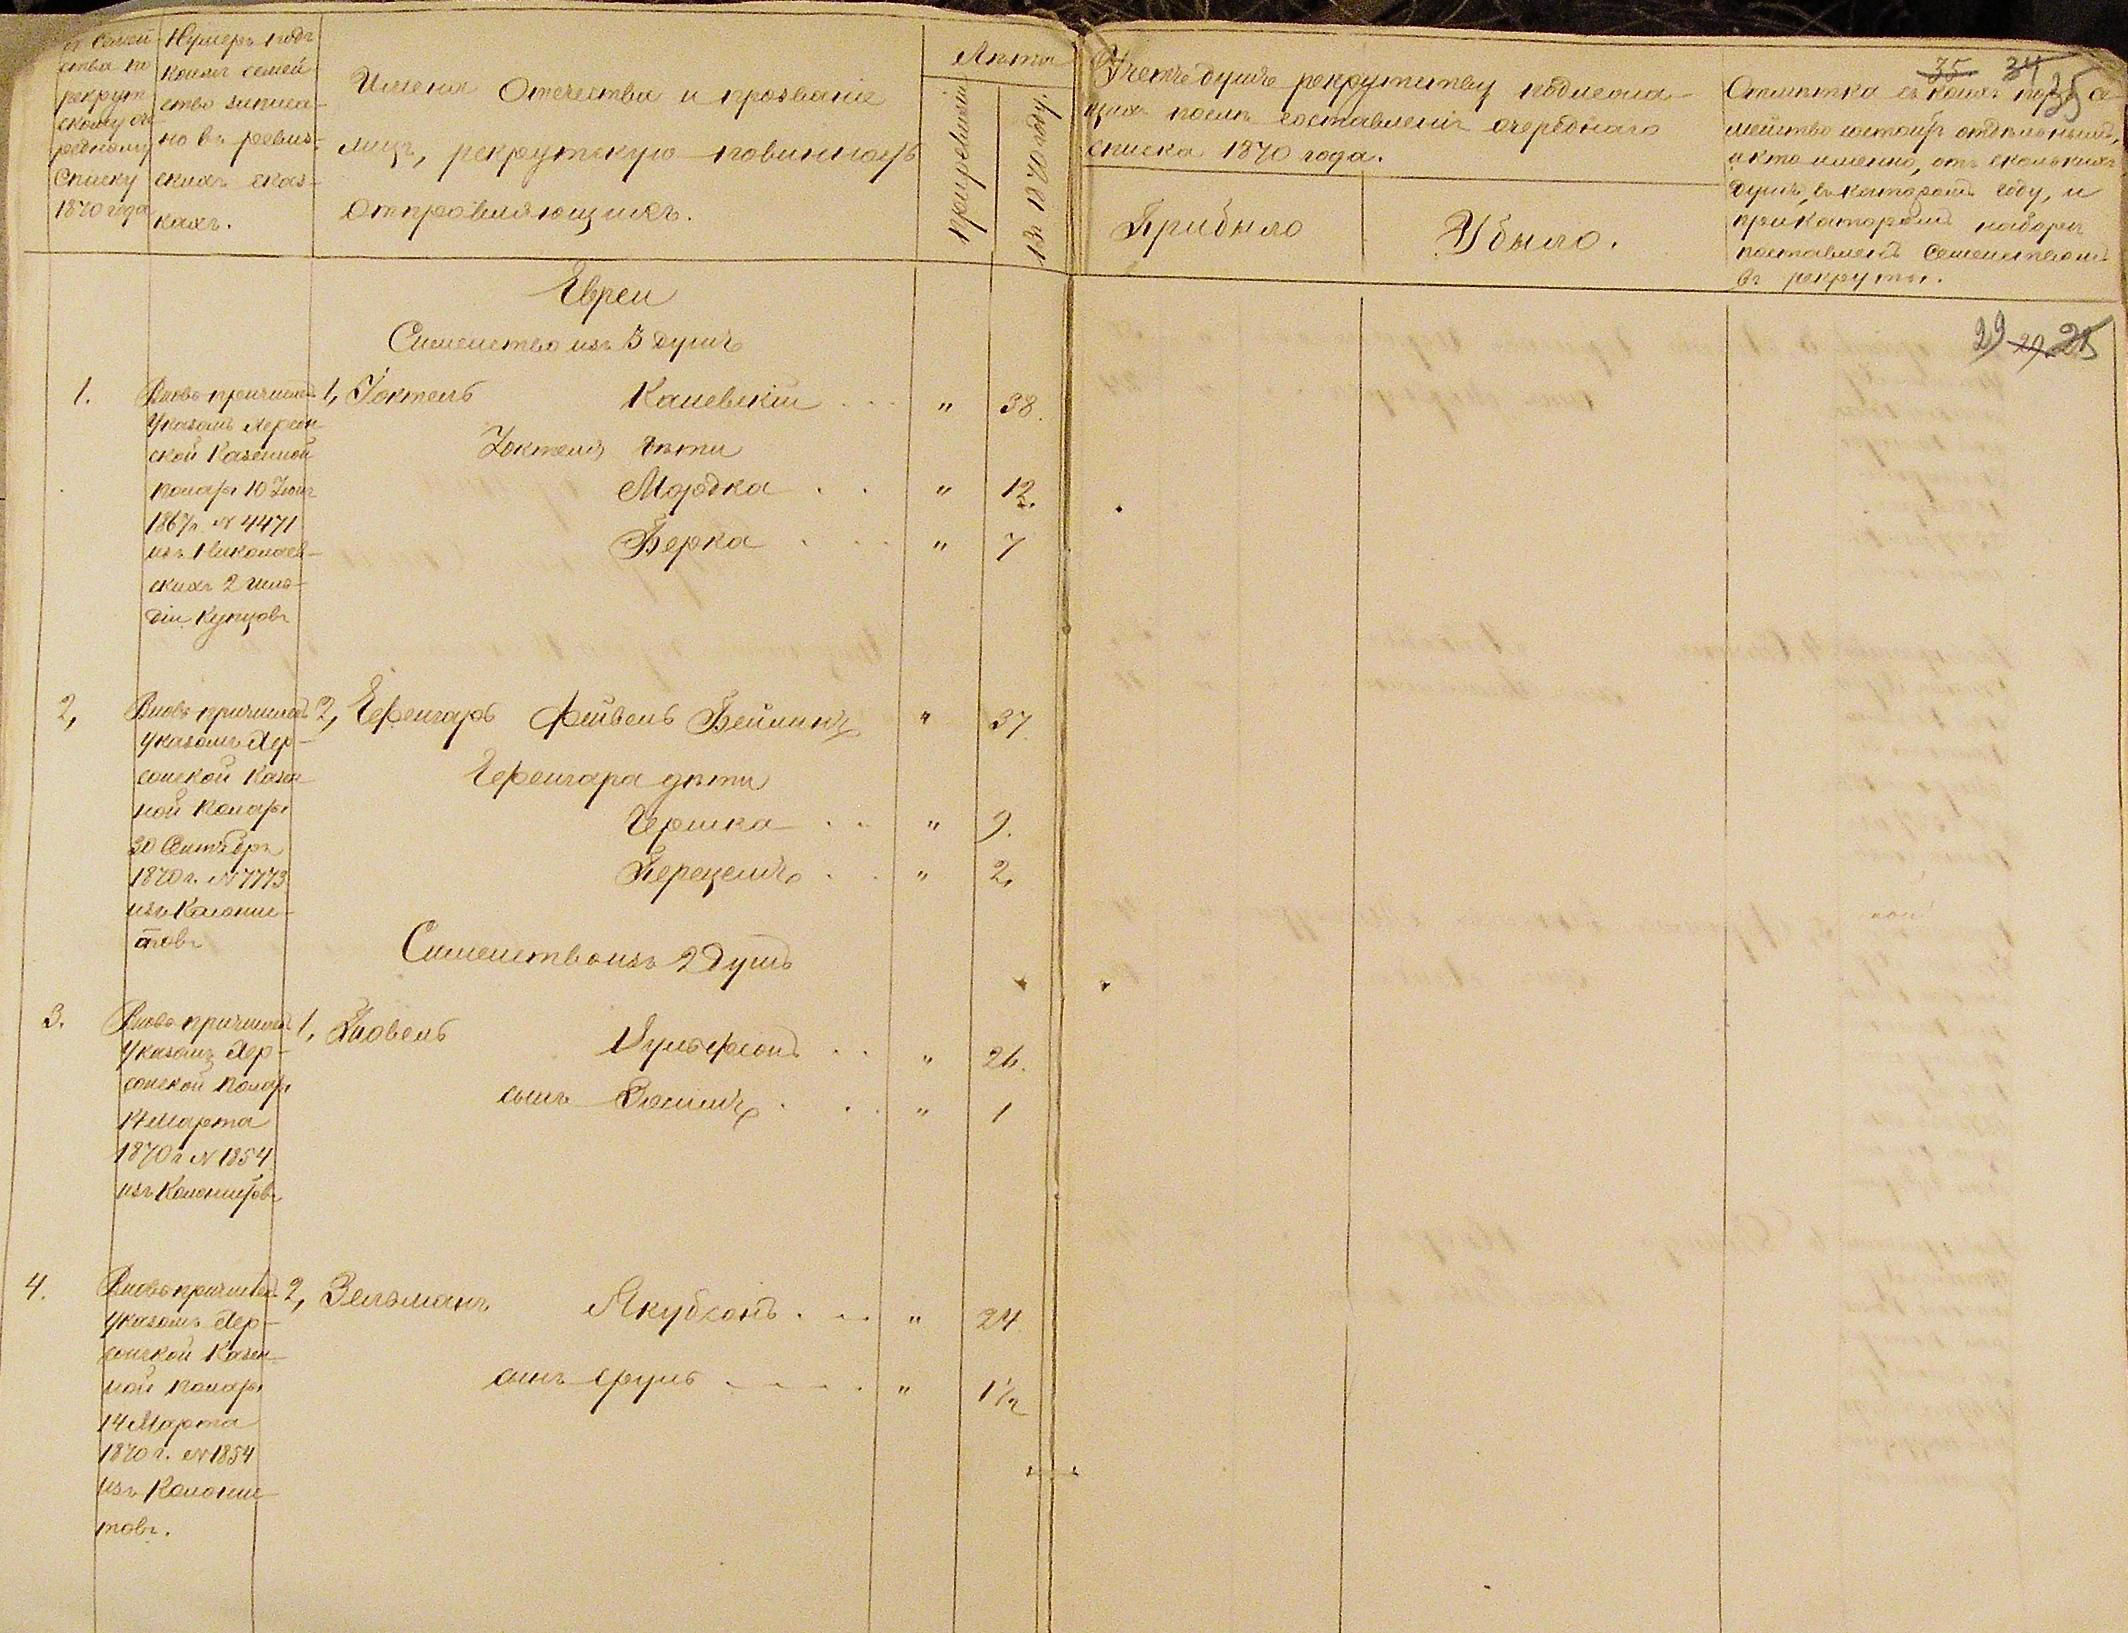 семей-
ства по
рекрут
скому оче
редному
Списку
1870 года
Нумеръ подъ
коимъ семей
ство записа-
но въ ревиз-
скихъ сказ-
кахъ.
Имена Отечества и прозваніе
лицъ, рекрутскую повинность
отправляющихъ.
Лѣта
по ревизіи
Въ 1870 году.
Учетъ душъ рекрутству подлежа-
щихъ послѣ составленія очереднаго
списка 1870 года.
Прибыло
Убыло.
Отмѣтка съ коихъ поръ се
мейство состоитъ отдѣльнымъ,
и кто именно, отъ сколькихъ
душъ, въ которомъ году, и
при которомъ наборѣ
поставленъ семействомъ
въ рекруты.
35 34 35
29 29 25
Евреи
Симейство изъ 3 душъ
1.
Вновь причислен.
Указомъ Херсон
ской Казенной
Полаты 10 Іюня
1867 г. N 4471
изъ Николаев-
скихъ 2 гиль-
діи Купцовъ
1, Іоктель Каневскій . . . " 38.
Іоктеля дѣти
Мордка . . " 12.
Берка . . . " 7
2,
Вновь причислен
указомъ Хер-
сонской Казен
ной Полаты
30 Сентября
1870 г. N 7773
изъ Колони-
стовъ
2, Гефенгаръ Фейвель Бейлинъ " 37.
Гефенгара дѣти
Гершка . . " 9.
Перецель . . " 2,
Симейство изъ 2 душъ
3.
Вновь причислен
Указомъ Хер-
сонской Полаты
14 Марта
1870 г. N 1854
изъ Колонистовъ
1, Вульфсонъ . . " 26.
сынъ . . . " 1
4.
Вновь причислен.
указомъ Хер-
сонской Казен-
ной Полаты
14 Марта
1870 г. N 1854
изъ Колони-
товъ.
2, Зельманъ Якубсонъ . . . " 24
сынъ Сруль . . . . " 1½